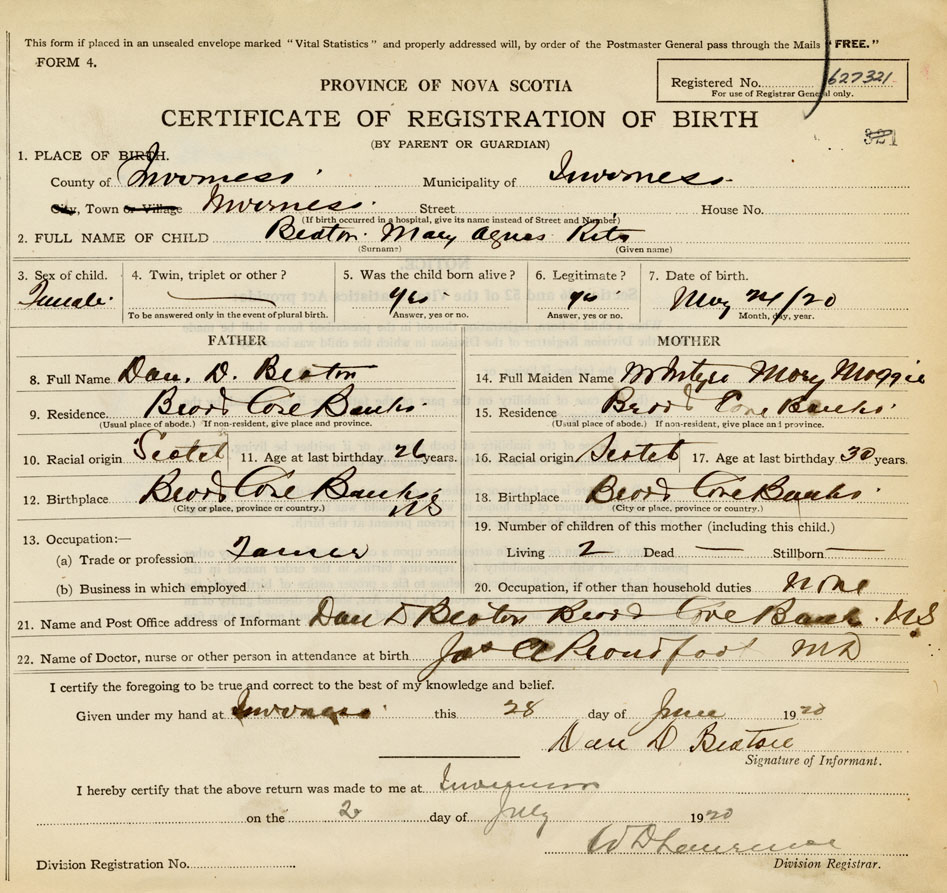 This form if placed in an unsealed envelope marked "Vital Statistics" and properly addressed will, by order of the Postmaster General pass through the Mails "FREE."
FORM 4.
Registered No. 627321
For use of Registrar General only.
PROVINCE OF NOVA SCOTIA
CERTIFICATE OF REGISTRATION OF BIRTH
(BY PARENT OR GUARDIAN)
321
1. PLACE OF BIRTH.
County of Inverness Municipality of Inverness
City, Town or Village Inverness Street House No.
(If birth occurred in a hospital, give its name instead of Street and Number)
2. FULL NAME OF CHILD Beaton Mary Agnes Rita
(Surname) (Given name)
3. Sex of child. 4. Twin, triplet or other? 5. Was the child born alive? 6. Legitimate? 7. Date of birth.
Female yes yes May 24/20
To be answered only in the event of plural birth. Answer, yes or no. Answer, yes or no. Month, day, year.
FATHER
8. Full Name Dan. D. Beaton
9. Residence Broad Cove Banks
(Usual place of abode.) If non-resident, give place and province.
10. Racial origin Scotch 11. Age at last birthday 26 years.
12. Birthplace Broad Cove Banks NS
(City or place, province or country.)
13. Occupation:—
(a) Trade or profession Farmer
(b) Business in which employed
MOTHER
14. Full Maiden Name McIntyre Mary Maggie
15. Residence Broad Cove Banks
(Usual place of abode.) If non-resident, give place and province.
16. Racial origin Scotch 17. Age at last birthday 30 years.
18. Birthplace Broad Cove Banks
(City or place, province or country.)
19. Number of children of this mother (including this child.)
Living 2 Dead — Stillborn —
20. Occupation, if other than household duties none
21. Name and Post Office address of Informant Dan D Beaton Broad Cove Bank. NS
22. Name of Doctor, nurse or other person in attendance at birth Jas A Proudfoot MD
I certify the foregoing to be true and correct to the best of my knowledge and belief.
Given under my hand at Inverness this 28 day of June 1920
Dan D Beaton
Signature of Informant.
I hereby certify that the above return was made to me at Inverness
on the 2 day of July 1920
Division Registration No. Division Registrar.